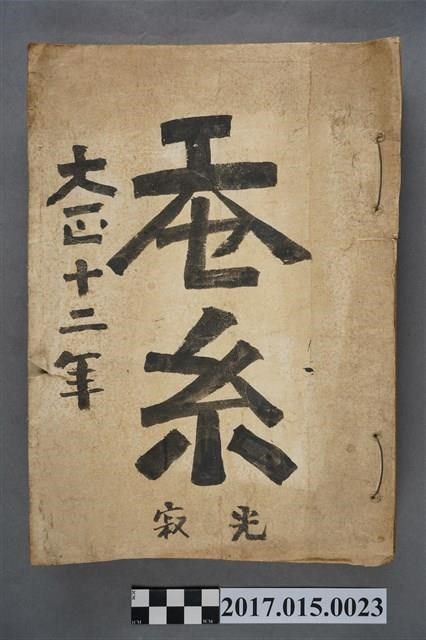 蚕糸
大正十二年
寂光
2017.015.0023